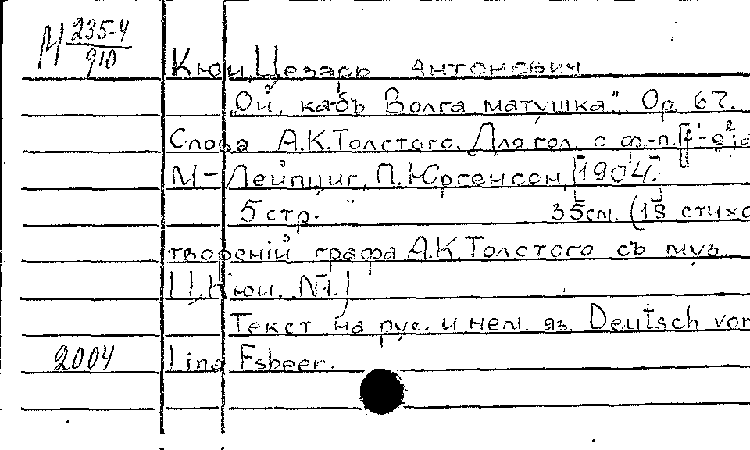 М 235-4
910
Кюи, Цезарь Антонович
„Ой, кабъ Волга матушка". Ор. 67.
Слова А.К.Толстого. Для гол. с ф-п.
М-Лейпциг, П. Юргенсон, [1904].
5 стр. 35см. (18 стихо
творенiй графа А.К.Толстого съ муз.
Ц. Кюи. №1.)
Текст на рус. и нем. яз. Deutsch von
2004 Lina Esbeer.